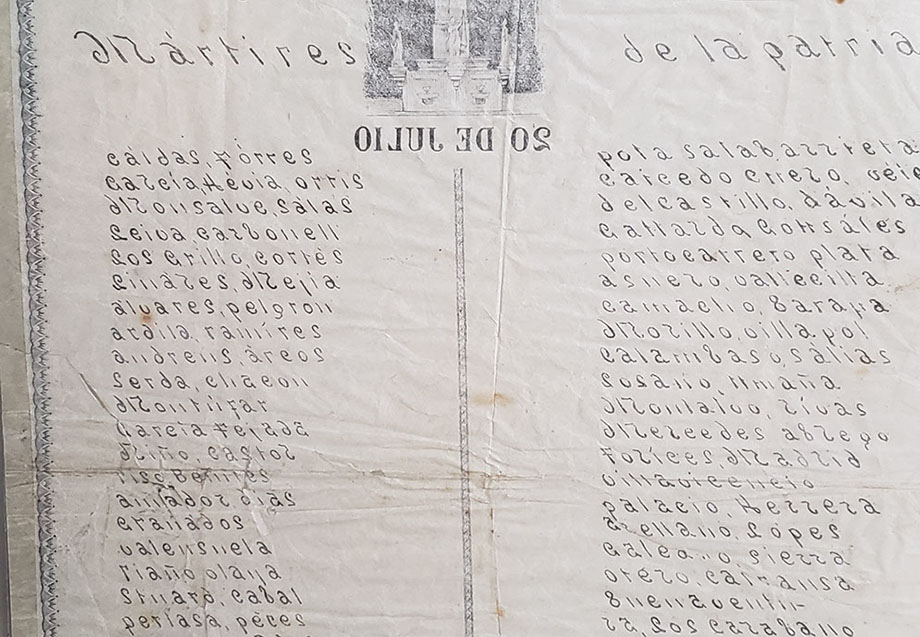 Mártires de la patria
20 DE JULIO
cáldas, tórres
García, Hévia, ortis
Monsalve, Sálas
Leiva, carbonell
Los Grillo, cortés
Linares, Mejía
álvares, pelgron
ardila, ramíres
andreus, árcos
Serda, chacon
Montúfar
García tejada
Niño, castor
benites
amador dias
granados
valensuela
riaño olaya
Stuard, cabal
perlasa, péres
pola salabarrieta
caicedo cuero,
del castillo, dávila
Gallardo Gonsáles
portocarrero plata
asuero, vallecilla
camacho, baraya
Morillo, villapol
calambas o salias
Losano, umaña
Montalvo, rívas
Mercedes abrego
toríces, Madrid
villavicencio
palacio, Herrera
arellano, Lópes
Galeano, sierra
otero, carransa
Buenaventu-
ra, Los caraballo